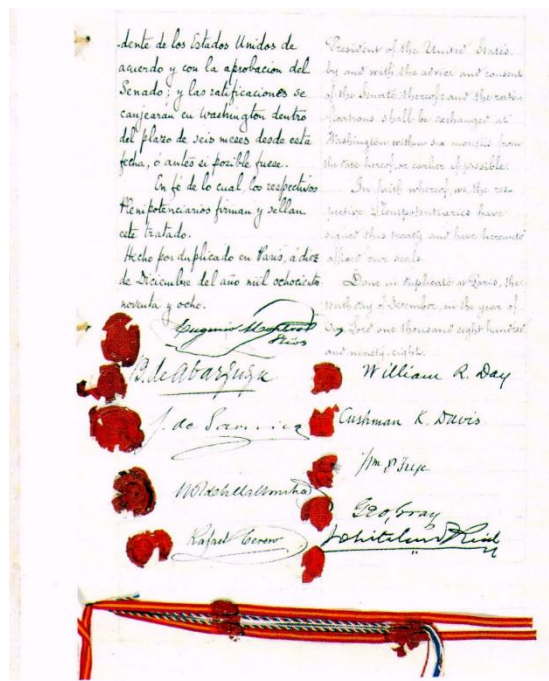 dente de los Estados Unidos de
acuerdo y con la aprobacion del
Senado; y las ratificaciones se
canjearan en Washington dentro
del plazo de seis meses desde esta
fecha, ó antes si posible fuese.
En fé de lo cual, los respectivos
Plenipotenciarios firman y sellan
este tratado.
Hecho por duplicado en Paris, á diez
de Diciembre del año mil ochocientos
noventa y ocho.
President of the United States,
by and with the advice and consent
of the Senate thereof; and the ratifi-
cations shall be exchanged at
Washington within six months from
the date hereof, or earlier if possible.
In faith whereof, we, the res-
pective Plenipotentiaries have
signed this treaty and have hereunto
affixed our seals.
Done in duplicate at Paris, the
tenth day of December, in the year of
Our Lord one thousand eight hundred
and ninety-eight.
Eugenio Montero
Rios
B. de Abarzuza
J. de
Rafael Cerero
William R. Day
Cushman K. Davis
Wm P Frye
Geo. Gray
Whitelaw Reid